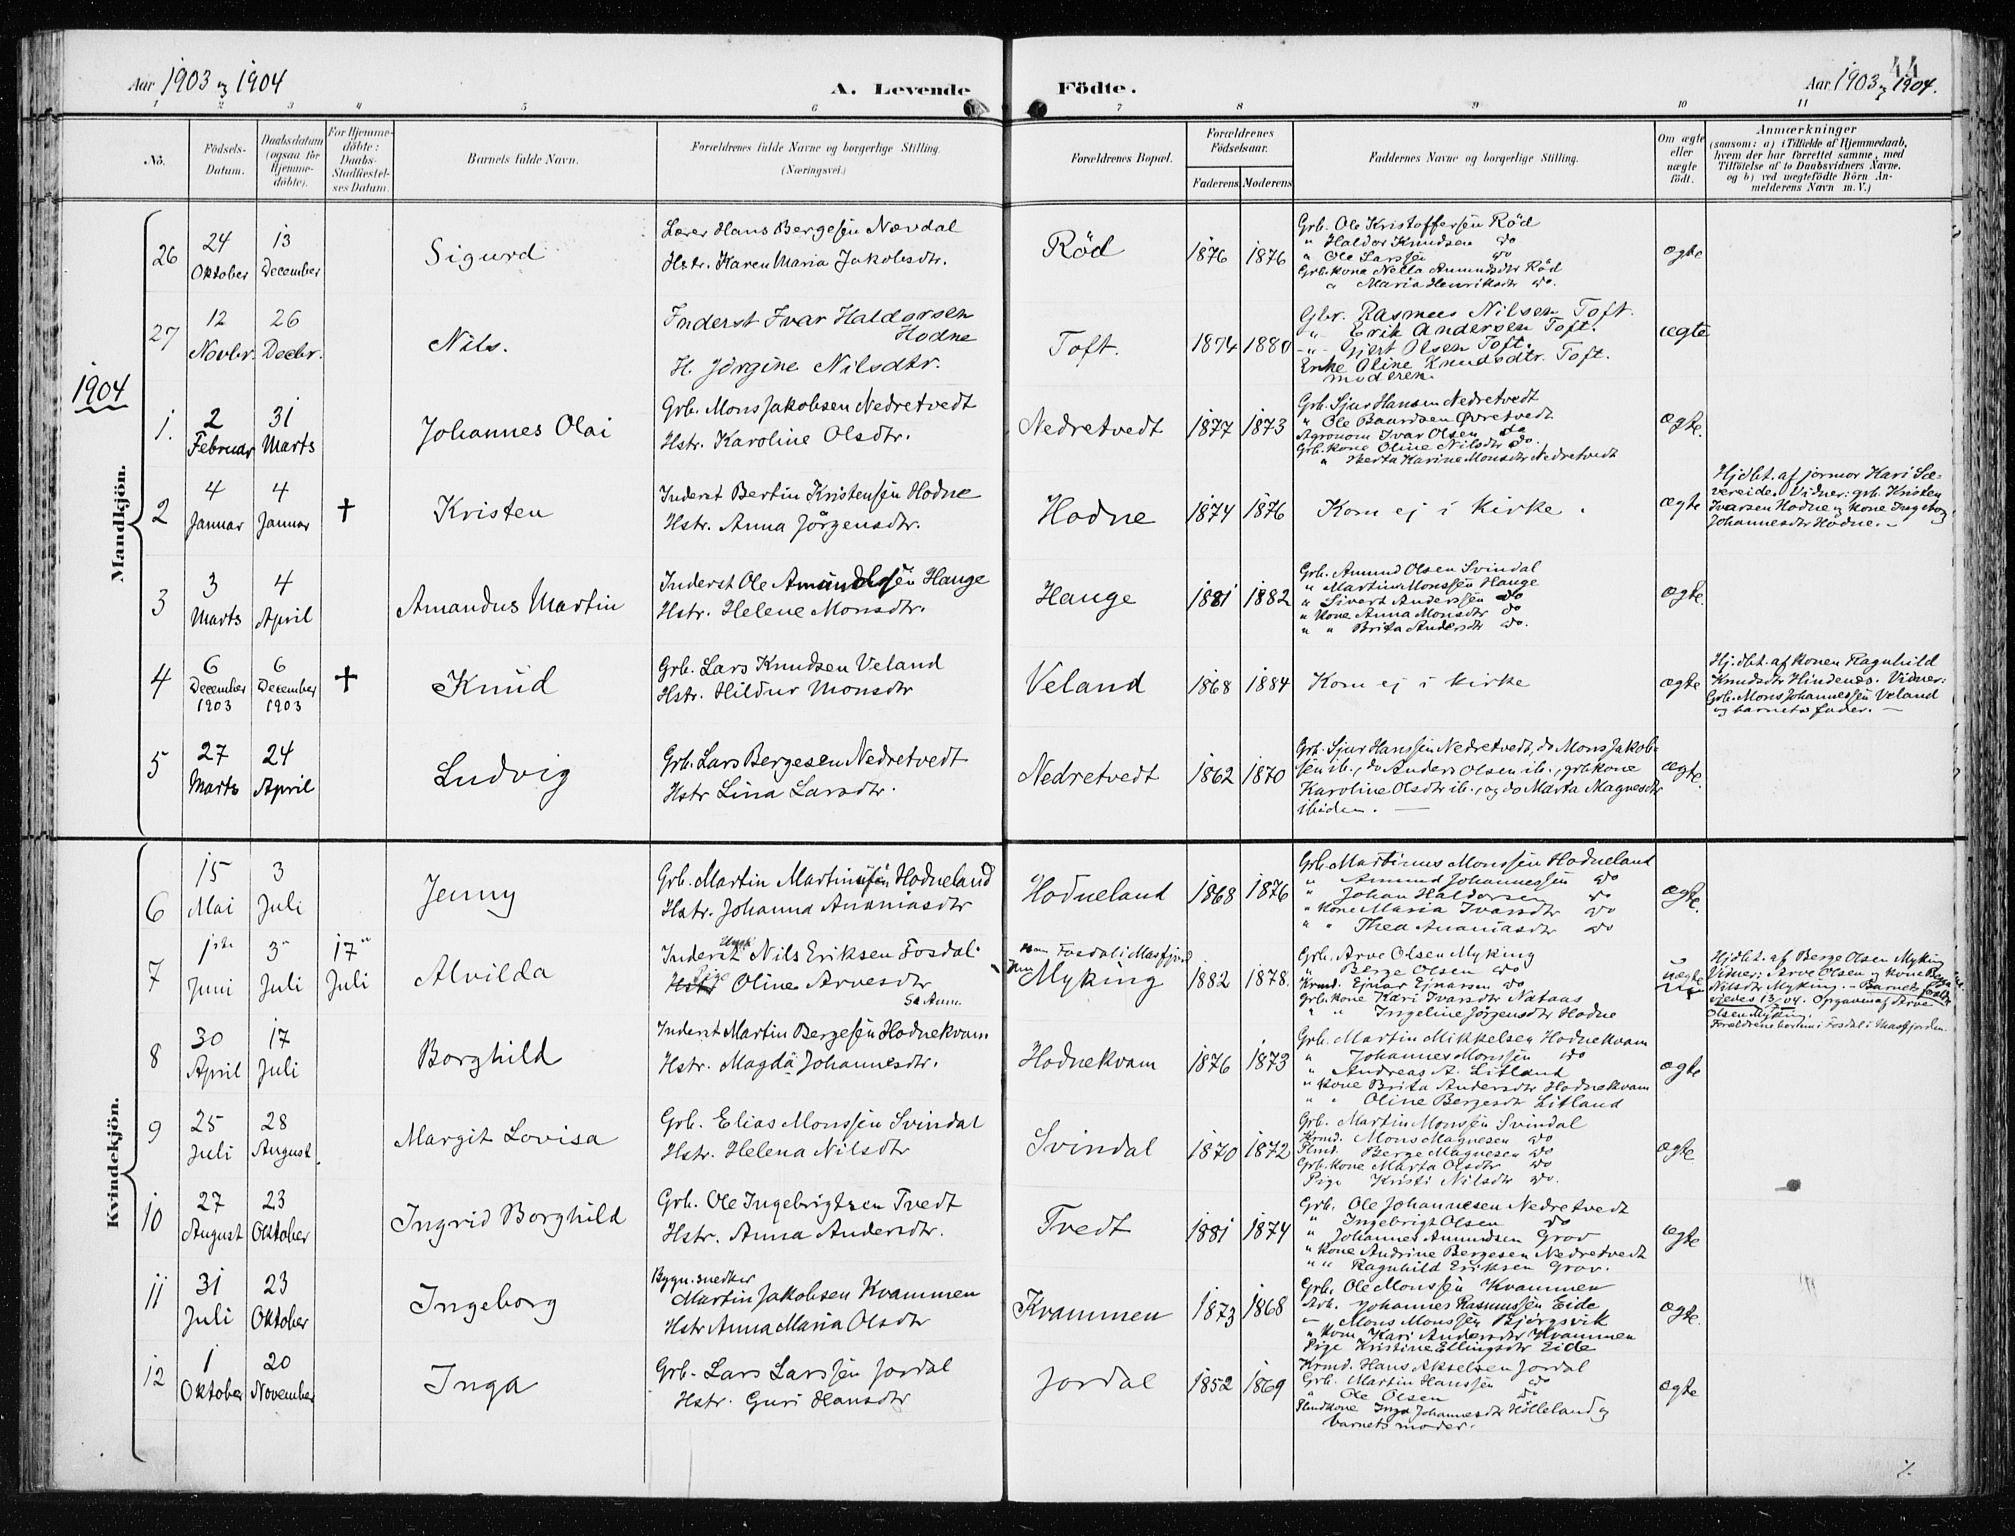 Aar 1903 og 1904
A. Levende
Födte.
44
Aar 1903 og 1904.
1 2 3 4 5 6 7 8 9 10 11
No.
Födsels-
Datum.
Daabsdatum
(ogsaa for
Hjemme-
döbte).
For Hjemme-
döbte:
Daabs-
Stadfæstel-
ses Datum.
Barnets fulde Navn.
Forældrenes fulde Navne og borgerlige Stilling.
(Næringsvei.)
Forældrenes Bopæl.
Forældrenes
Födselsaar.
Faderens
Moderens
Faddernes Navne og borgerlige Stilling.
Om ægte
eller
uægte
födt.
Anmærkninger
(saasom: a) i Tilfælde af Hjemmedaab,
hvem der har forrettet samme, med
Tilföielse af to Daabsvidners Navne,
og b) ved uægtefödte Börn An-
melderens Navn m. V.)
Mandkjön.
26
24
Oktober
13
December
Sigurd
Lærer Hans Bergesen Nævdal
Hstr. Karen Maria Jakobsdtr.
Röd
1876
1876
Grb. Ole Kristoffersen Röd
" Haldor Knudsen do
" Ole Larssen do
Grb.kona Nella Amundsdtr Röd
" Maria Henriksdtr do.
ægte
27
12
Novbr.
26
Decbr.
Nils.
Inderst Ivar Haldorsen
Hodne
H. Jörgine Nilsdtr.
Toft.
1874
1880
Gbr. Rasmus Nilsen Toft.
-"- Erik Andersen Toft.
-"- Gjert Olsen Toft.
Enke Oline Knudsdtr. Toft.
moderen
ægte
1904
1.
2
Februar
31
Marts
Johannes Olai
Grb. Mons Jakobsen Nedretvedt
Hstr. Karoline Olsdtr.
Nedretvedt
1877
1873
Grb. Sjur Hansen Nedretvedt
" Ole Baardsen Øvretvedt
Agronom Ivar Olsen do
Grb.kone Oline Nilsdtr do.
" Berta Karine Monsdtr Nedretvedt
ægte.
2
4
Januar
4
Januar
+
Kristen
Inderst Bertin Kristensen Hodne
Hstr. Anna Jörgensdtr.
Hodne
1874
1876
Kom ej i kirke.
ægte
Hjdbt. af jormor Kari Sæ-
vereide. Vidner: grb. Kristen
Ivarsen Hodne og kone Ingeborg
Johannesdtr Hodne. -
3
3
Marts
4
April
Amandus Martin
Inderst Ole Amundsen Hauge
Hstr. Helene Monsdtr.
Hauge
1881
1882
Grb. Amund Olsen Svindal
" Martin Monssen Hauge
" Sivert Anderssen do
" kone Anna Monsdtr do
" " Brita Andersdtr do.
ægte.
4
6
December
1903
6
December
1903
+
Knud
Grb. Lars Knudsen Veland
Hstr. Hildur Monsdtr
Veland
1868
1884
Kom ej i kirke
ægte
Hjdbt. af konen Ragnhild
Knudsdtr Hindenes. Vidner:
Grb. Mons Johannessen Veland
og barnets fader. -
5
27
Marts
24
April
Ludvig
Grb. Lars Bergesen Nedretvedt
Hstr Lina Larsdtr.
Nedretvedt
1862
1870
Grb. Sjur Hanssen Nedretvedt, do Mons Jakob-
sen ib., do Anders Olsen ib., grbkone
Karoline Olsdtr ib., og do Marta Magnesdtr
ibiden. -
ægte.
Kvindekjön.
6
15
Mai
3
Juli
Jenny
Grb. Martin Martinussen Hodneland
Hstr. Johanna Ananiasdtr
Hodneland
1868
1876
Grb. Martinus Monssen Hodneland
" Amund Johannessen do
" Johan Haldorsen do
" kone Maria Ivarsdtr do
" " Thea Ananiasdtr do
ægte.
7
1ste
Juni
3-
Juli
17"
Juli
Alvilda
Ungk.
Inderst Nils Eriksen Fosdal.
Pige
Hstr Oline Arvesdtr
Se Anm.
Han Fosdal i Masfjord
Hun
Myking
1882
1878.
Grb. Arve Olsen Myking
" Berge Olsen do
Krmd. Ejnar Ejnarsen do
Grb.kone Kari Ivarsdtr Nataas
" " Ingeline Jörgensdtr Hodne
uægte
Hjdbt. af Berge Olsen Myking
Vidner: Arve Olsen og kone
Nilsdtr Myking. - Barnets
13/04. Opgaven af Arve
Olsen Myking.
Forældrene bosatte i Fosdal i Masfjorden.
8
30
April
17
Juli
Borghild
Inderst Martin Bergesen Hodnekvam.
Hstr. Magda Johannesdtr.
Hodnekvam
1876
1873
Grb. Martin Mikkelsen Hodnekvam
" Johannes Monssen do
" Andreas A. Litland
" kone Brita Andersdtr Hodnekvam
" " Oline Bergesdtr Litland
ægte
9
25
Juli
28
August.
Margit Lovisa
Grb. Elias Monssen Svindal
Hstr. Helena Nilsdtr
Svindal
1870
1872
Grb. Martin Monssen Svindal
Krmd. Mons Magnesen do
Plmd. Berge Magnesen do
Grb.kone Marta Olsdtr do
Pige Kristi Nilsdtr do.
ægte
10
27
August
23
Oktober
Ingrid Borghild
Grb. Ole Ingebrigtsen Tvedt
Hstr. Anna Andersdtr.
Tvedt
1881
1874
Grb. Ole Johannesen Nedretvedt
" Ingebrigt Olsen do
" Johannes Amundsen Grov
" kone Andrine Bergesen Nedretvedt
" " Ragnhild Eriksen Grov.
ægte
11
31
Juli
23
Oktober
Ingeborg
Bygn.snedker
Martin Jakobsen Kvammen
Hstr Anna Maria Olsdtr
Kvammen
1873
1868
Grb. Ole Monssen Kvammen
Arb. Johannes Rasmussen Eide
- Mons Monssen Bjørgsvik
" kone Kari Andersdtr Kvammen
Pige Kristine Ellingsdtr Eide
ægte.
12
1
Oktober
20
November
Inga
Grb. Lars Larssen Jordal
Hstr. Guri Hansdtr
Jordal
1852
1869
Krmd. Hans Akselsen Jordal
Grb. Martin Hanssen do
" Ole Olsen do
Plmdkone Inga Johannesdtr Hölleland og
barnets moder.
ægte